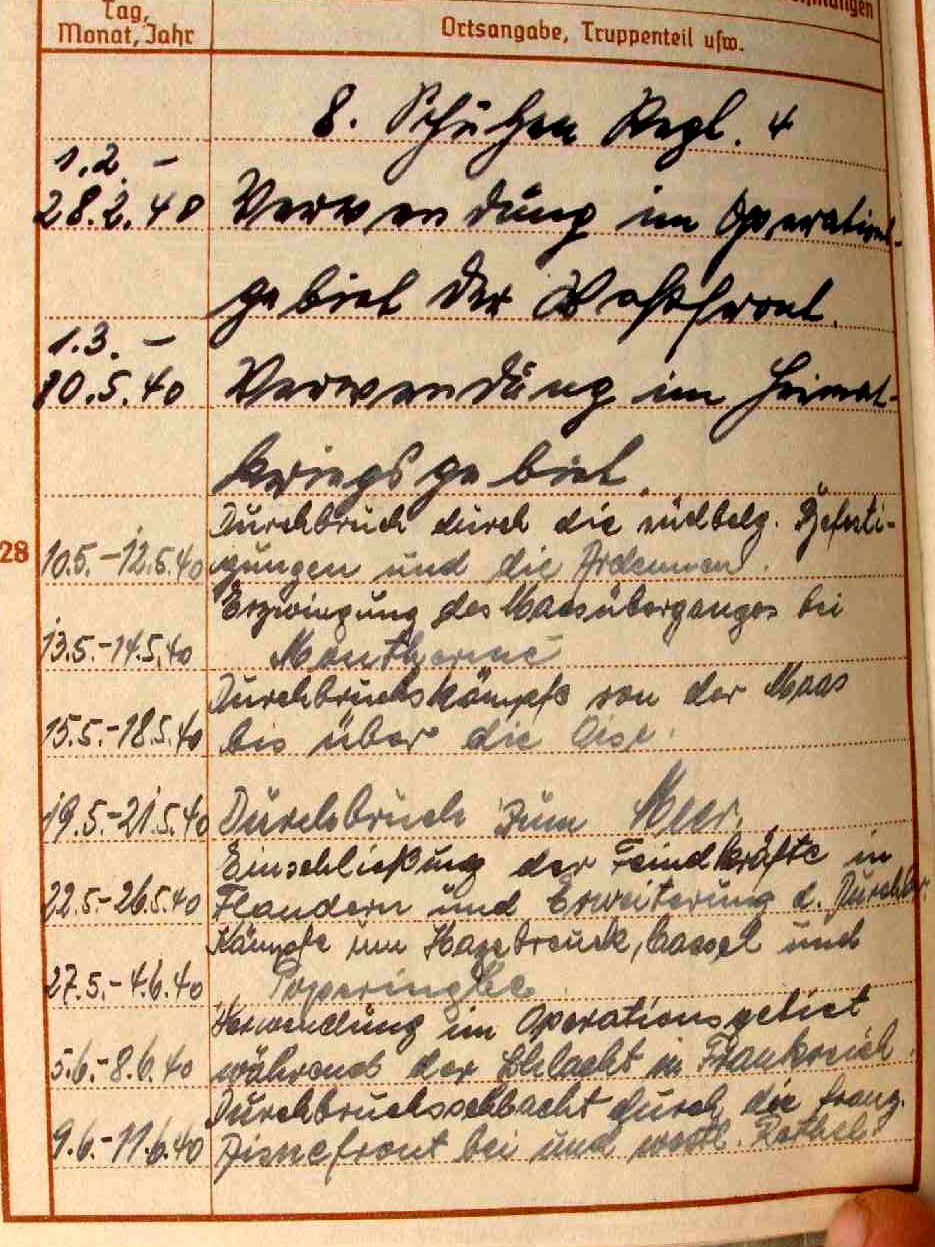 Tag,
Monat, Jahr
Ortsangabe, Truppenteil usw.
8. Schützen Regt. 4
1.2. –
28.2.40 Verwendung im Operations-
gebiet der Westfront.
1.3. –
10.5.40 Verwendung im Heimat-
kriegsgebiet.
Durchbruch durch die südbelg. Befesti-
28
10.5.-12.5.40 gungen und die Ardennen.
Erzwingung des Maasüberganges bei
13.5.-14.5.40 Montherme
Durchbruchskämpfe von der Maas
15.5.-18.5.40 bis über die Oise.
19.5.-21.5.40 Durchbruch zum Meer.
Einschließung der Feindkräfte in
22.5.-26.5.40 Flandern und Erweiterung d. Durchbr.
Kämpfe um Hazebrouck, Cassel und
27.5.-4.6.40
Verwendung im Operationsgebiet
5.6.-8.6.40 während der Schlacht in Frankreich.
Durchbruchsschlacht durch die franz.
9.6.-11.6.40 Aisnefront bei und westl. Rethel